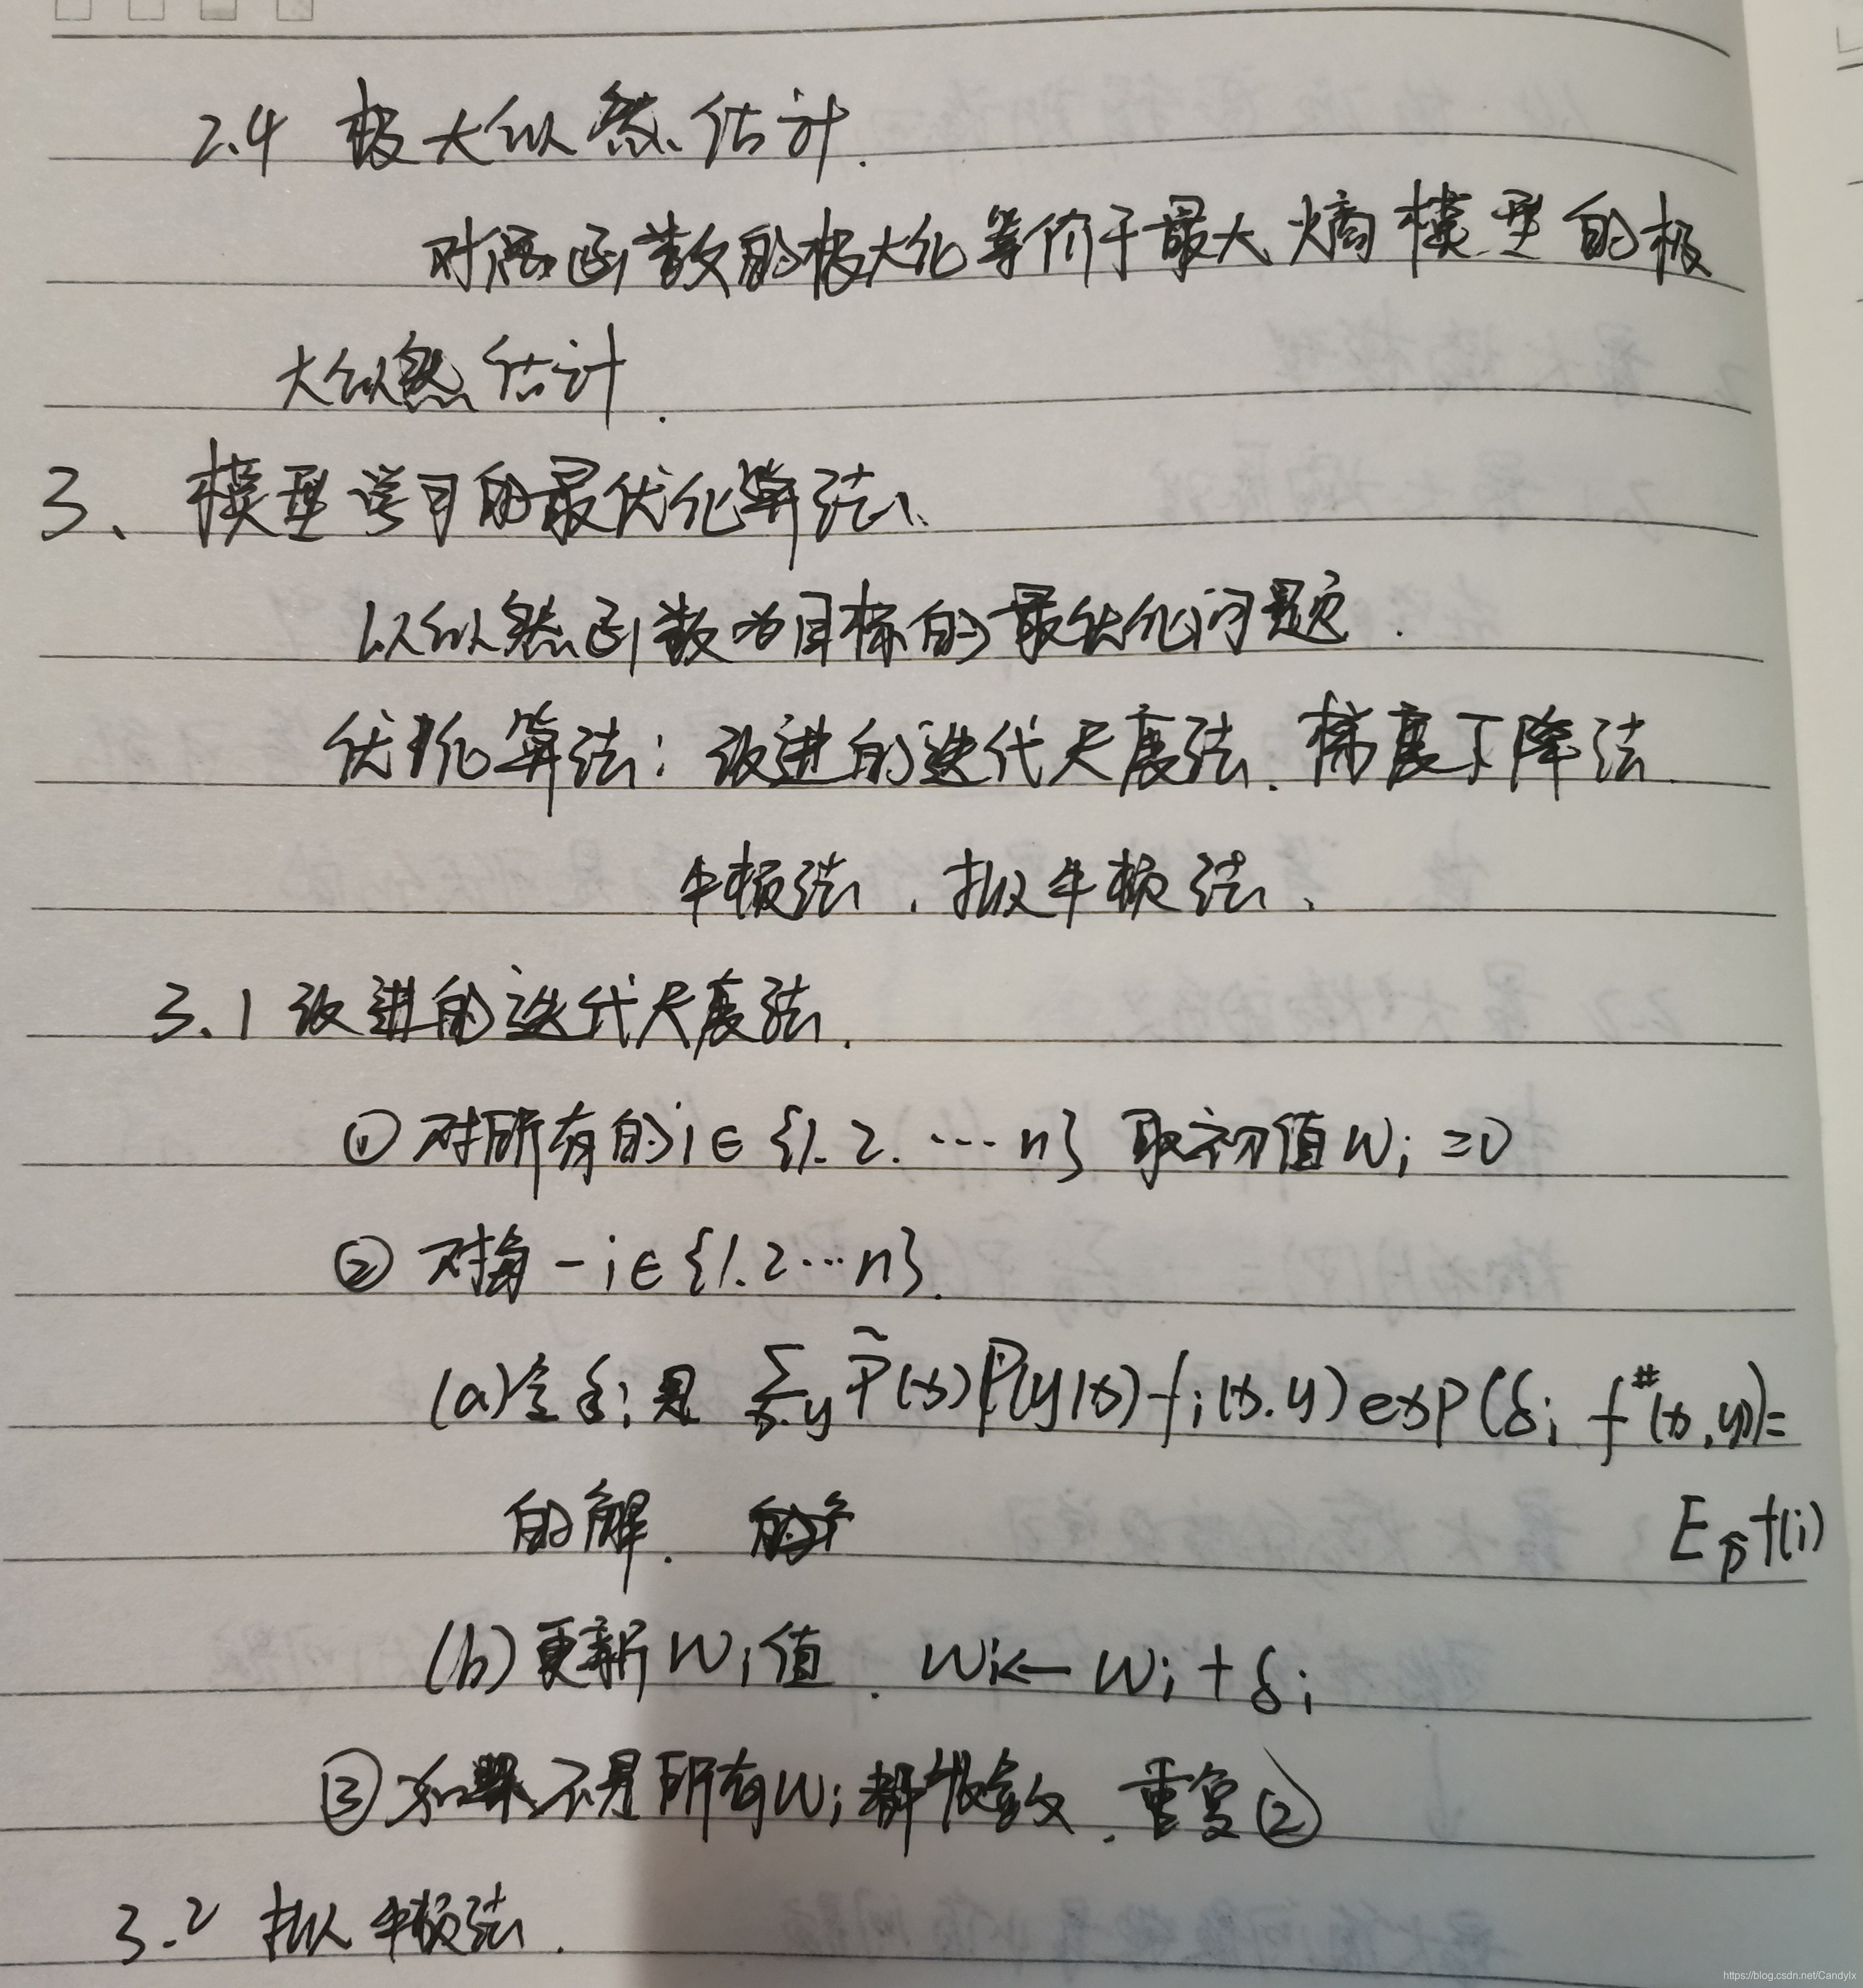 2.4 极大似然估计.
对偶函数的极大化等价于最大熵模型的极
大似然估计.
3、模型学习的最优化算法、
以似然函数为目标的最优化问题.
优化算法：改进的迭代尺度法、梯度下降法
牛顿法、拟牛顿法、
3.1 改进的迭代尺度法.
① 对所有的i∈{1.2.…n} 取初值wᵢ=0
② 对每一i∈{1.2…n}.
(a)令δᵢ是 Σx.y P̃(x)P(y|x)fᵢ(x.y)exp(δᵢ f^#(x,y))=
的解. E_P̃ f(i)
(b)更新wᵢ值. wᵢ← wᵢ+δᵢ
③如果不是所有wᵢ都收敛、重复②
3.2 拟牛顿法.
https://blog.csdn.net/Candylx